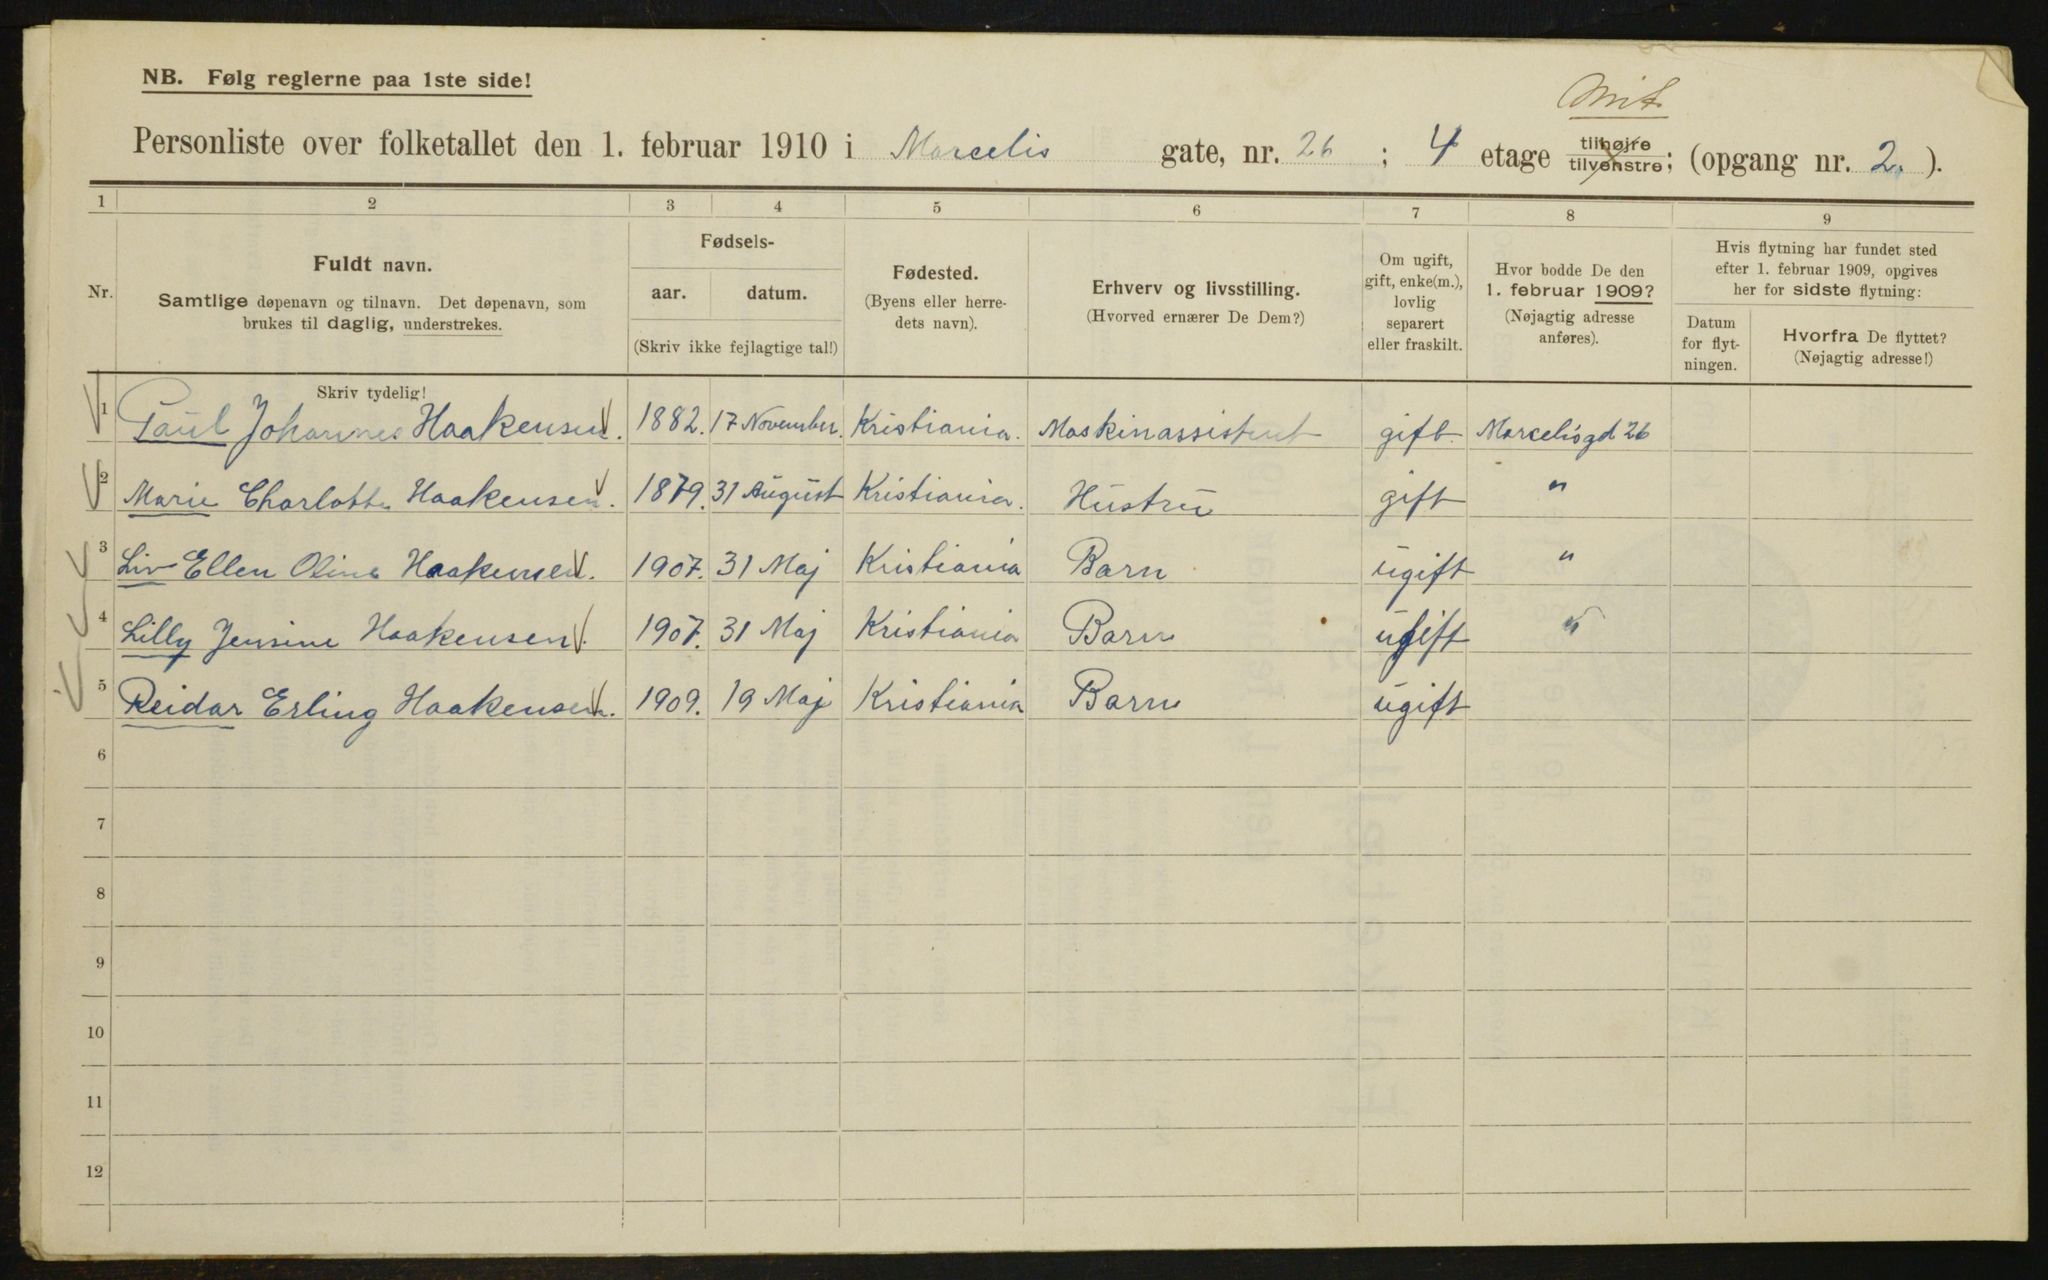 NB. Følg reglerne paa 1ste side!
Mit.
Personliste over folketallet den 1. februar 1910 i Marcelis gate, nr. 26 ; 4 etage tilhøjre tilvenstre; (opgang nr. 2. ).
1 2 3 4 5 6 7 8 9
Nr.
Fuldt navn.
Samtlige døpenavn og tilnavn. Det døpenavn, som
brukes til daglig, understrekes.
Skriv tydelig!
Fødsels-
aar. datum.
(Skriv ikke fejlagtige tal!)
Fødested.
(Byens eller herre-
dets navn).
Erhverv og livsstilling.
(Hvorved ernærer De Dem?)
Om ugift,
gift, enke(m.),
lovlig
separert
eller fraskilt.
Hvor bodde De den
1. februar 1909?
(Nøjagtig adresse
anføres).
Hvis flytning har fundet sted
efter 1. februar 1909, opgives
her for sidste flytning:
Datum
for flyt-
ningen.
Hvorfra De flyttet?
(Nøjagtig adresse!)
1 Paul Johannes Haakensen. 1882. 17 November. Kristiania. Maskinassistent gift. Marcelisgd 26
2 Marie Charlotte Haakensen. 1879. 31 August Kristiania. Hustru gift "
3 Liv Ellen Oline Haakensen. 1907. 31 Maj Kristiania Barn ugift "
4 Lilly Jensine Haakensen. 1907. 31 Maj Kristiania Barn ugift "
5 Reidar Erling Haakensen. 1909. 19 Maj Kristiania Barn ugift
6
7
8
9
10
11
12